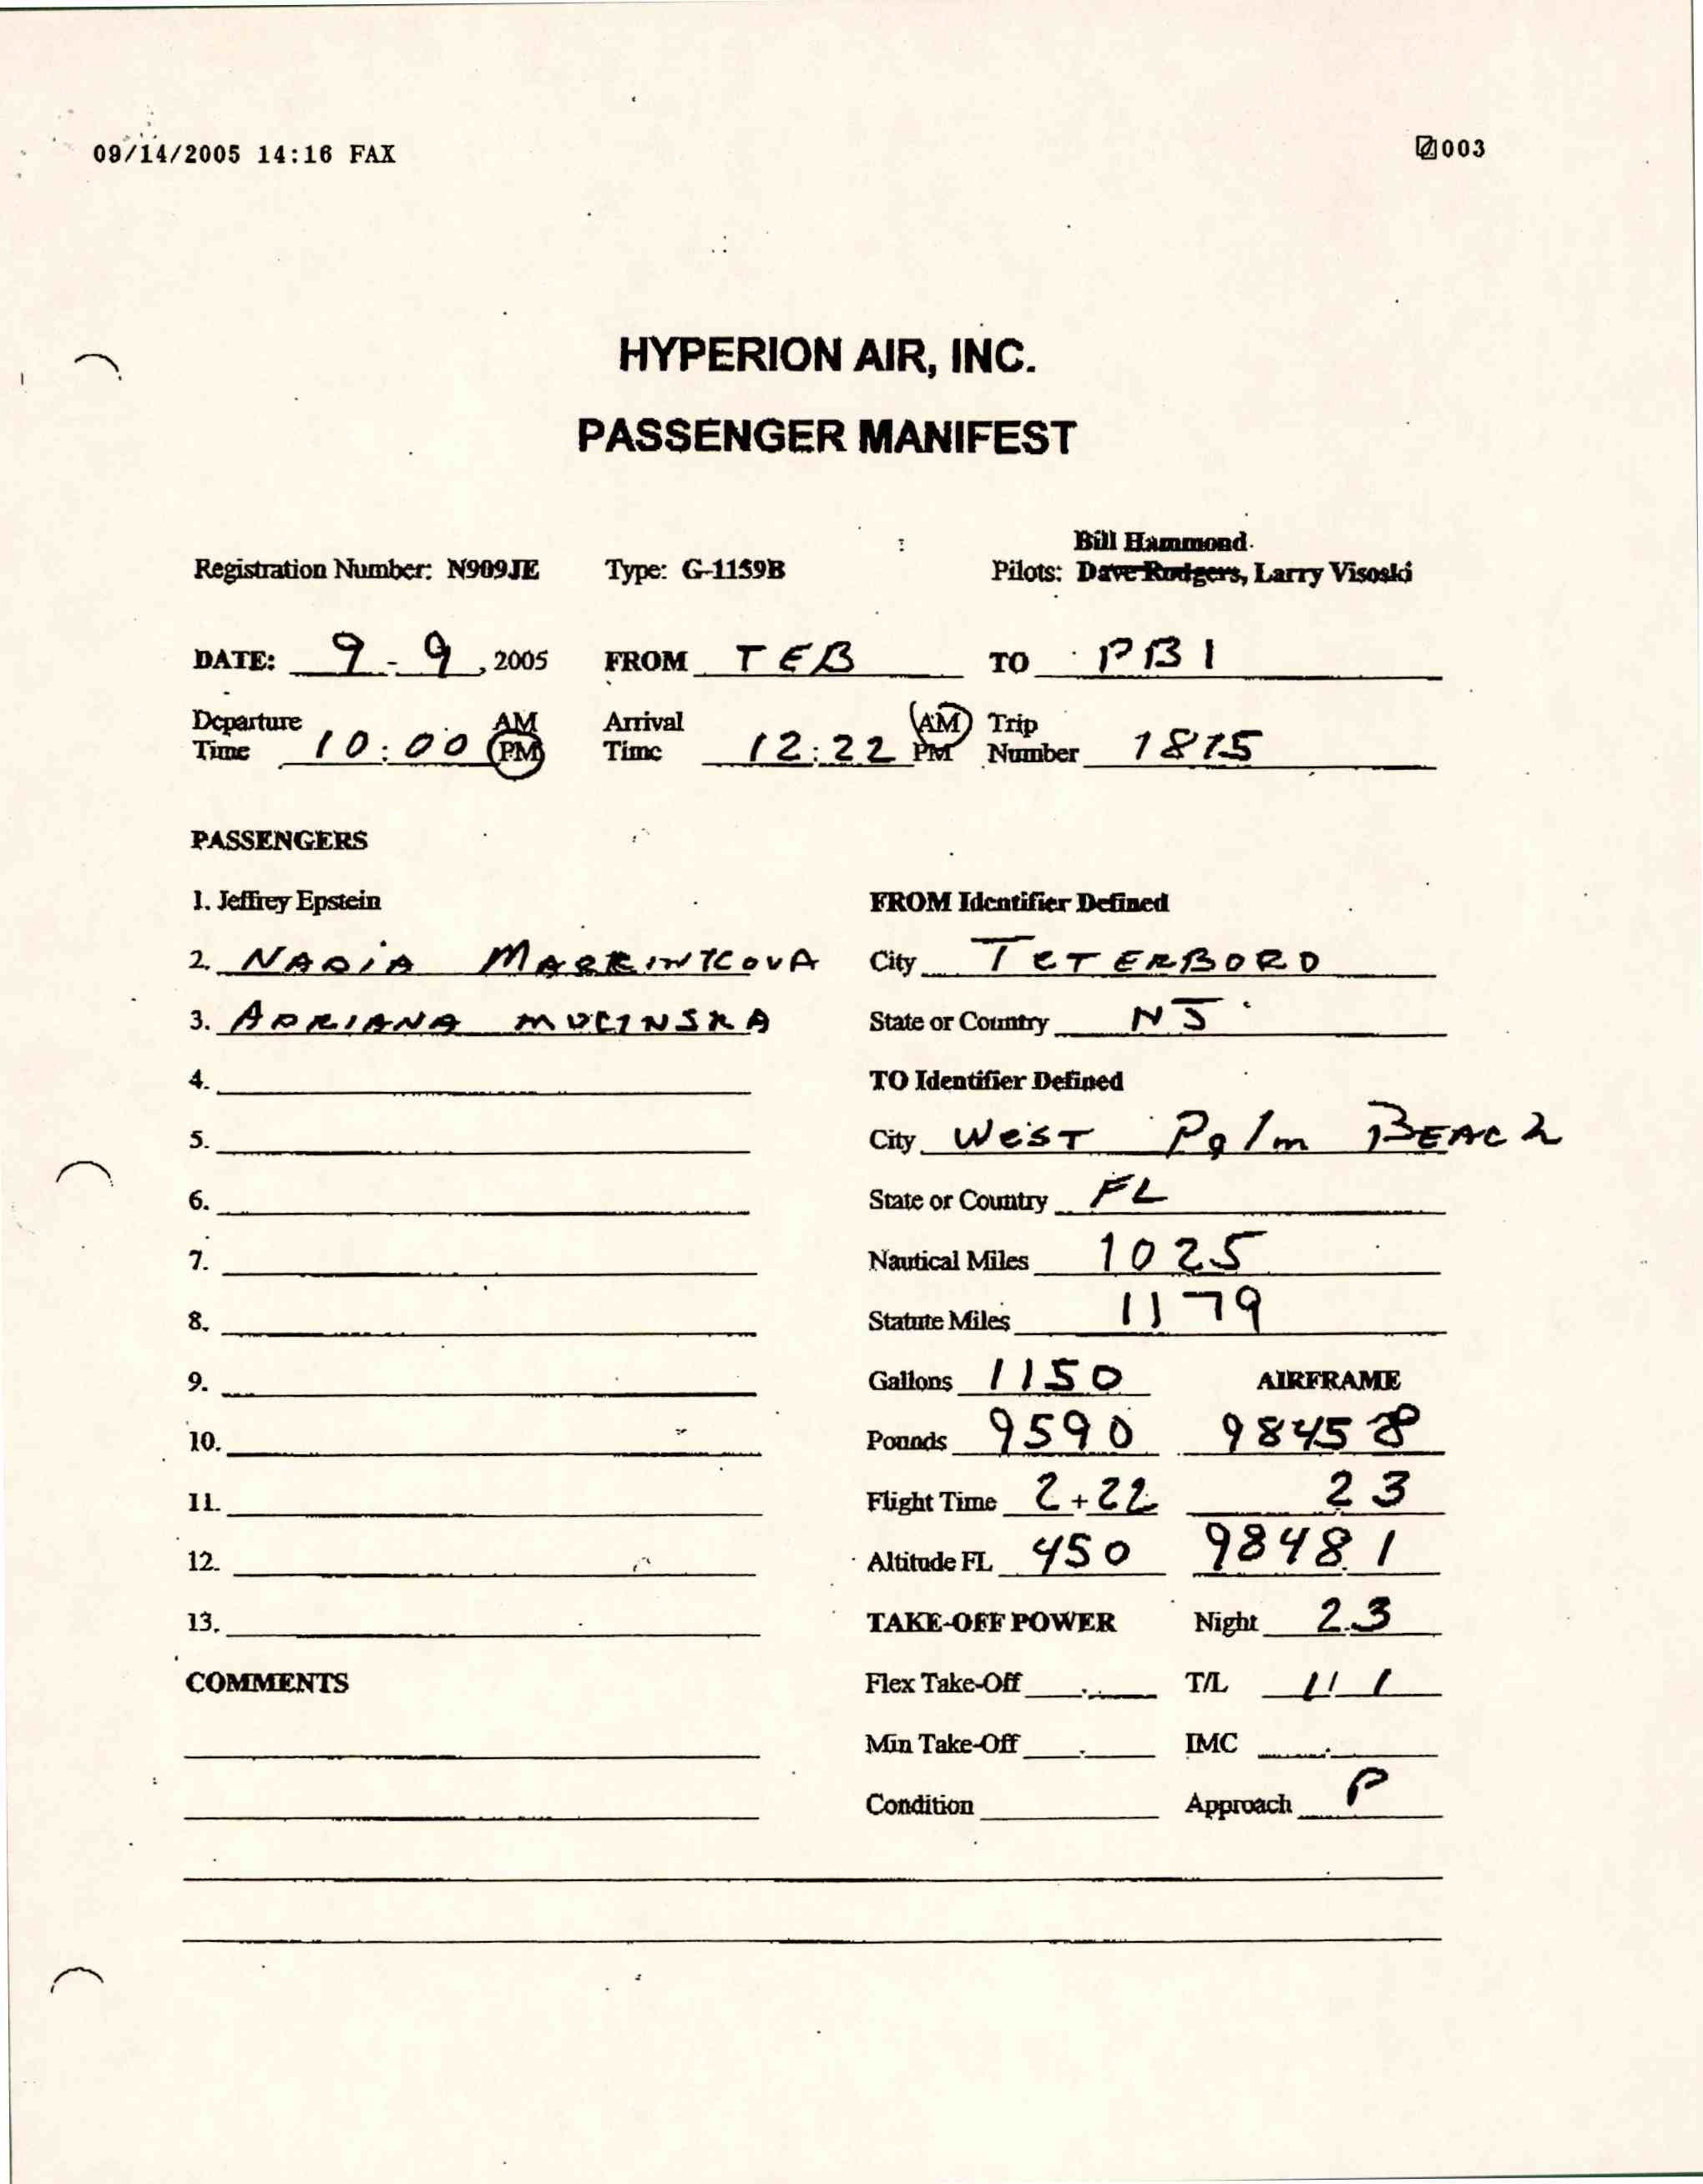 09/14/2005 14:16 FAX
003
HYPERION AIR, INC.
PASSENGER MANIFEST
Bill Hammond
Registration Number: N909JE Type: G-1159B Pilots: Dave Rodgers, Larry Visoski
DATE: 9-9, 2005 FROM TEB TO PBI
Departure Time 10:00 AM PM Arrival Time 12:22 AM PM Trip Number 1875
PASSENGERS
1. Jeffrey Epstein FROM Identifier Defined
2. NADIA MARKINKOVA City TETERBORO
3. ADRIANA MUCINSKA State or Country NJ
4. TO Identifier Defined
5. City West Palm BEACh
6. State or Country FL
7. Nautical Miles 1025
8. Statute Miles 1179
9. Gallons 1150 AIRFRAME
10. Pounds 9590 98458
11. Flight Time 2+22 23
12. Altitude FL 450 9848.1
13. TAKE-OFF POWER Night 2.3
COMMENTS Flex Take-Off T/L 1/1
Min Take-Off IMC
Condition Approach P